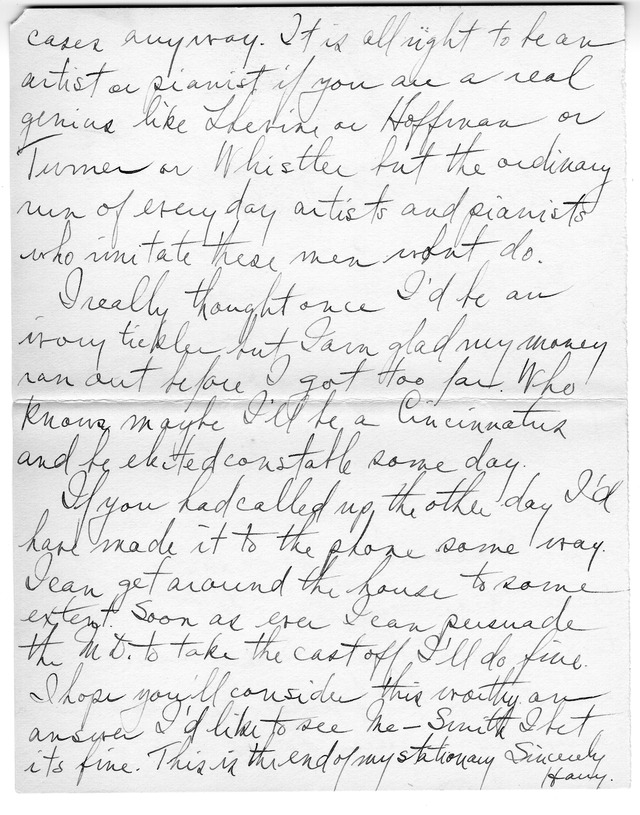 cases anyway. It is all right to be an
artist or pianist if you are a real
genius like Lhevine or Hoffman or
Turner or Whistler but the ordinary
run of every day artists and pianists
who imitate these men wont do.
I really thought once I'd be an
ivory tickler but I am glad my money
ran out before I got too far. Who
knows, maybe I'll be a Cincinnatus
and be elected constable some day.
If you had called up the other day I'd
have made it to the phone some way.
I can get around the house to some
extent. Soon as ever I can persuade
the M.D. to take the cast off, I'll do fine.
I hope you'll consider this worthy an
answer I'd like to see Me-Smith I bet
its fine. This is the end of my stationary Sincerely
Harry.